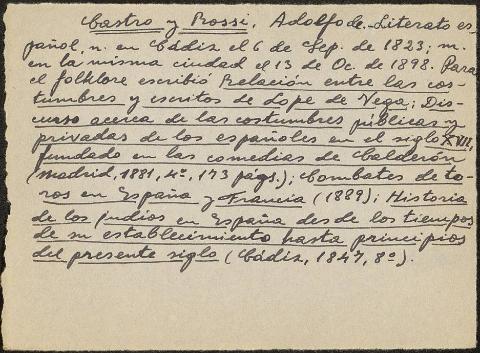 Castro y Rossi, Adolfo de.-Literato es-
pañol, n. en Cádiz el 6 de Sep. de 1823; m.
en la misma ciudad el 13 de Oc. de 1898. Para
el folklore escribió Relación entre las cos-
tumbres y escritos de Lope de Vega; Dis-
curso acerca de las costumbres públicas y
privadas de los españoles en el siglo XVII,
fundado en las comedias de Calderón
(Madrid, 1881, 4º, 173 págs.); Combates de to-
ros en España y Francia (1889); Historia
de los Judios en España desde los tiempos
de su establecimiento hasta principios
del presente siglo (Cádiz, 1847, 8º).